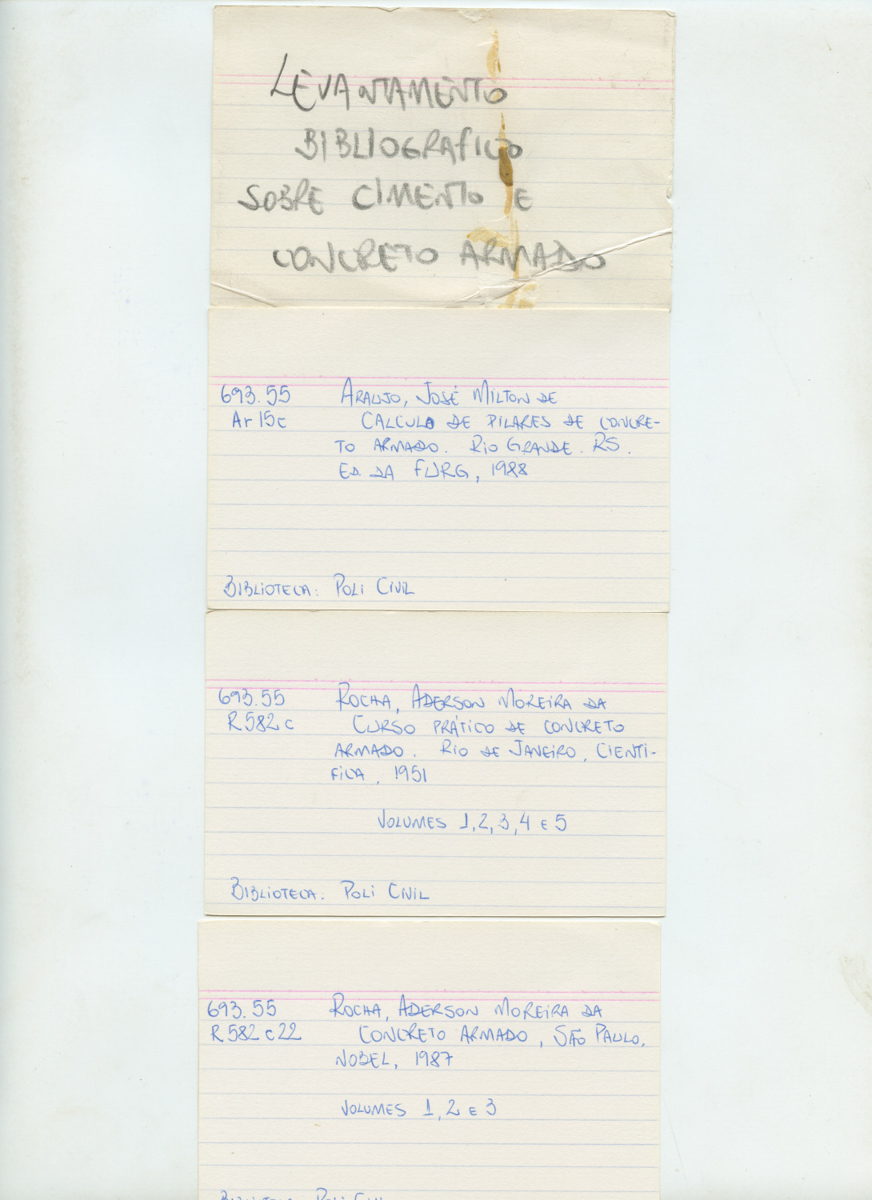 LEVANTAMENTO
BIBLIOGRAFICO
SOBRE CIMENTO E
CONCRETO ARMADO
693.55 ARAUJO, JOSÉ MILTON DE
Ar 15c CALCULO DE PILARES DE CONCRE-
TO ARMADO. RIO GRANDE. RS.
ED. DA FURG, 1988
BIBLIOTECA: POLI CIVIL
693.55 ROCHA, ADERSON MOREIRA DA
R582c CURSO PRÁTICO DE CONCRETO
ARMADO. RIO DE JANEIRO, CIENTI-
FICA, 1951
VOLUMES 1,2,3,4 E 5
BIBLIOTECA. POLI CIVIL
693.55 ROCHA, ADERSON MOREIRA DA
R582c22 CONCRETO ARMADO, SÃO PAULO,
NOBEL, 1987
VOLUMES 1,2 E 3